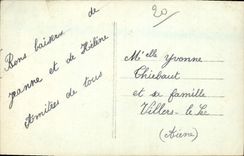 Bons baisers de
Jeanne et de Hélène
Amitiés de tous
20
Melle Yvonne
Thiébaut
et sa famille
Villers-le-Sec
(Aisne)